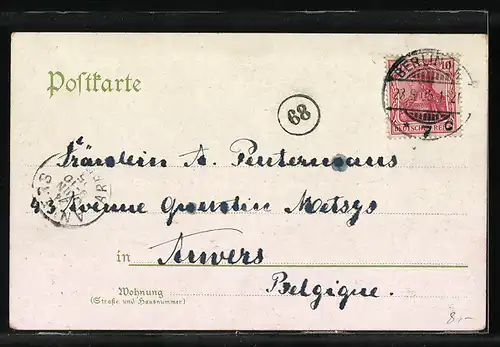 Postkarte
10
BERLIN
DEUTSCHES REICH
* 7 C
68
Fräulein A. Pentermans
43 Avenue Quentin Metsys
in Anvers
Belgique.
Wohnung
(Straße und Hausnummer)
8,-